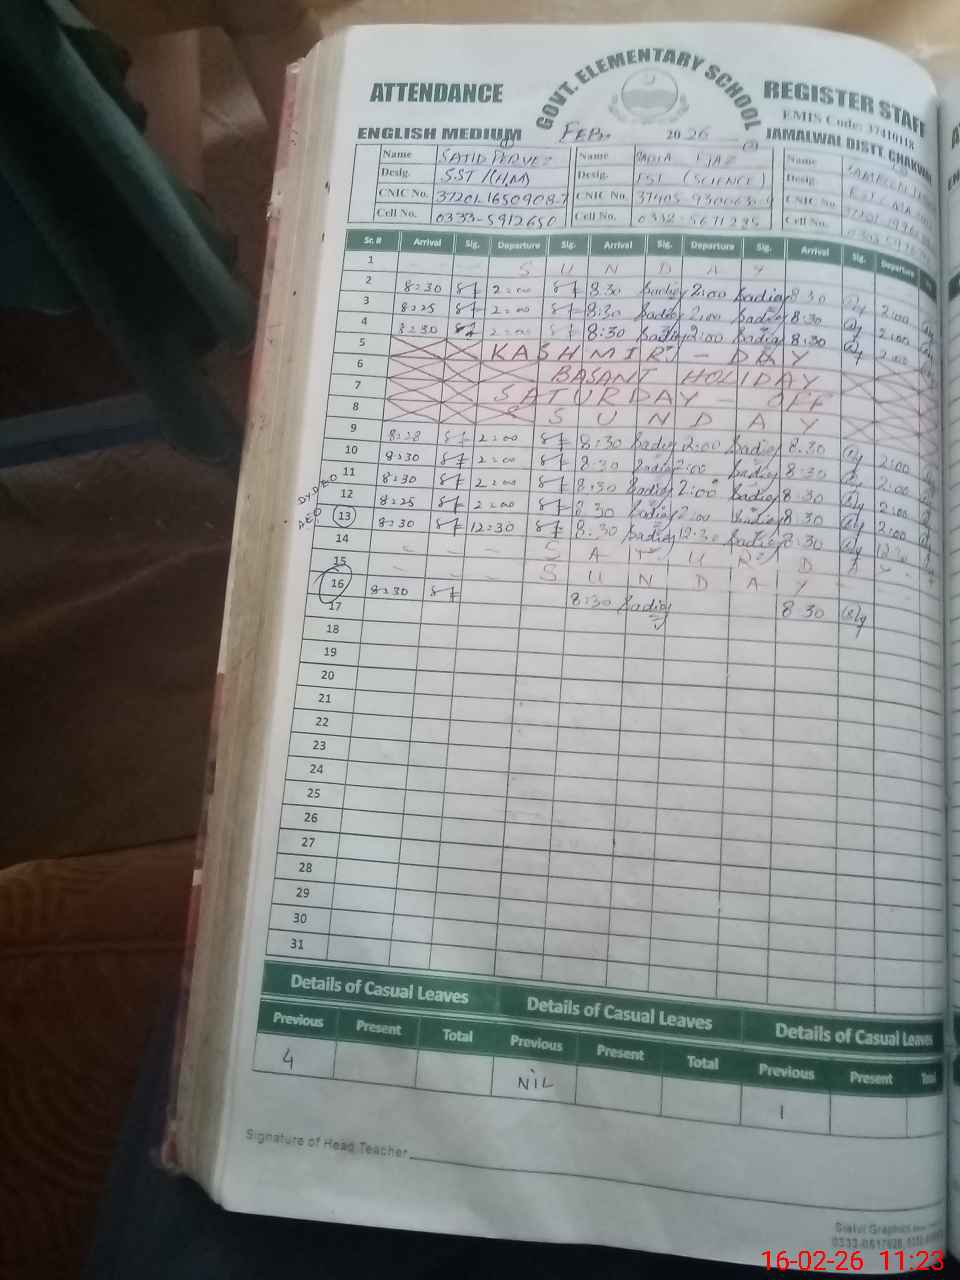 ATTENDANCE GOVT. ELEMENTARY SCHOOL REGISTER STAFF
EMIS Code: 37410118
ENGLISH MEDIUM FEB. 2026 JAMALWAL DISTT. CHAKWAL
Name SAJID PERVEZ Name SADIA Name
Desig. SST (HM) Desig. EST (SCIENCE) Desig.
CNIC No. 37201-1650908-7 CNIC No. CNIC No.
Cell No. 0333-5912650 Cell No. 0332-5671235 Cell No.
Sr. # Arrival Sig. Departure Sig. Arrival Sig. Departure Sig. Arrival Sig. Departure
1 S U N D A Y
2 8:30 2:00 8:30 Sadia 2:00 Sadia 8:30 2:00
3 8:25 2:00 8:30 Sadia 2:00 Sadia 8:30 2:00
4 8:30 2:00 8:30 Sadia 2:00 Sadia 8:30 2:00
5 KASHMIR - DAY
6 BASANT HOLIDAY
7 SATURDAY - OFF
8 S U N D A Y
9 8:28 2:00 8:30 Sadia 2:00 Sadia 8:30 2:00
10 8:30 2:00 8:30 Sadia 2:00 Sadia 8:30 2:00
11 8:30 2:00 8:30 Sadia 2:00 Sadia 8:30 2:00
12 8:25 2:00 8:30 Sadia 2:00 Sadia 8:30 2:00
13 8:30 12:30 8:30 Sadia 12:30 Sadia 8:30
14 S A T U R D A Y
15 S U N D A Y
16 8:30 8:30 Sadia 8:30
17
18
19
20
21
22
23
24
25
26
27
28
29
30
31
Details of Casual Leaves Details of Casual Leaves Details of Casual Leaves
Previous Present Total Previous Present Total Previous Present Total
4 NIL 1
Signature of Head Teacher
Sialvi Graphics
16-02-26 11:23